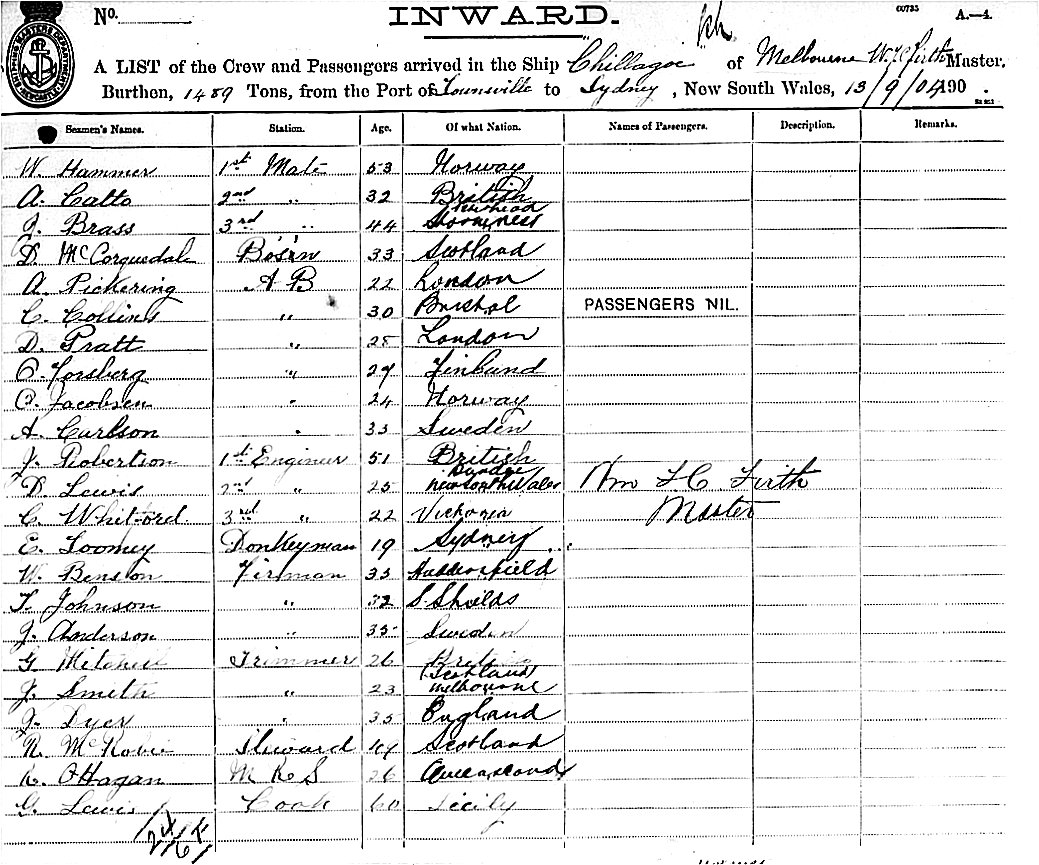 No. INWARD. 00735 A.—4.
A LIST of the Crew and Passengers arrived in the Ship Chillagoe of Melbourne W.F.C Firth Master,
Burthen, 1489 Tons, from the Port of Townsville to Sydney, New South Wales, 13/9/04 190 .
Seamen's Names. Station. Age. Of what Nation. Names of Passengers. Description. Remarks.
W. Hammer 1st Mate 53 Norway
A. Catto 2nd " 32 British
J. Brass 3rd " 44 Stromness
D. McCorquedale Bo's'n 33 Scotland
A. Pickering A B 22 London
C. Collins " 30 Bristol PASSENGERS NIL.
D. Pratt " 28 London
O. Forsberg " 29 Finland
O. Jacobsen " 24 Norway
A. Carlson " 33 Sweden
J. Robertson 1st Engineer 51 British
Dundee
D. Lewis 2nd " 25 New South Wales Wm F C Firth
C. Whitford. 3rd " 22 Victoria Master
E. Toomey Donkeyman 19 Sydney
W. Benston Firman 33 Huddersfield
T. Johnson " 32 S. Shields
J. Anderson " 35 Sweden
G. Mitchell Trimmer 26 British
Scotland
J. Smith " 23 Melbourne
J. Dyer " 35 England
R. McRobie Steward 49 Scotland
R. O'Hagan M R S 26 Queensland
G. Lewis Cook 60 Sicily